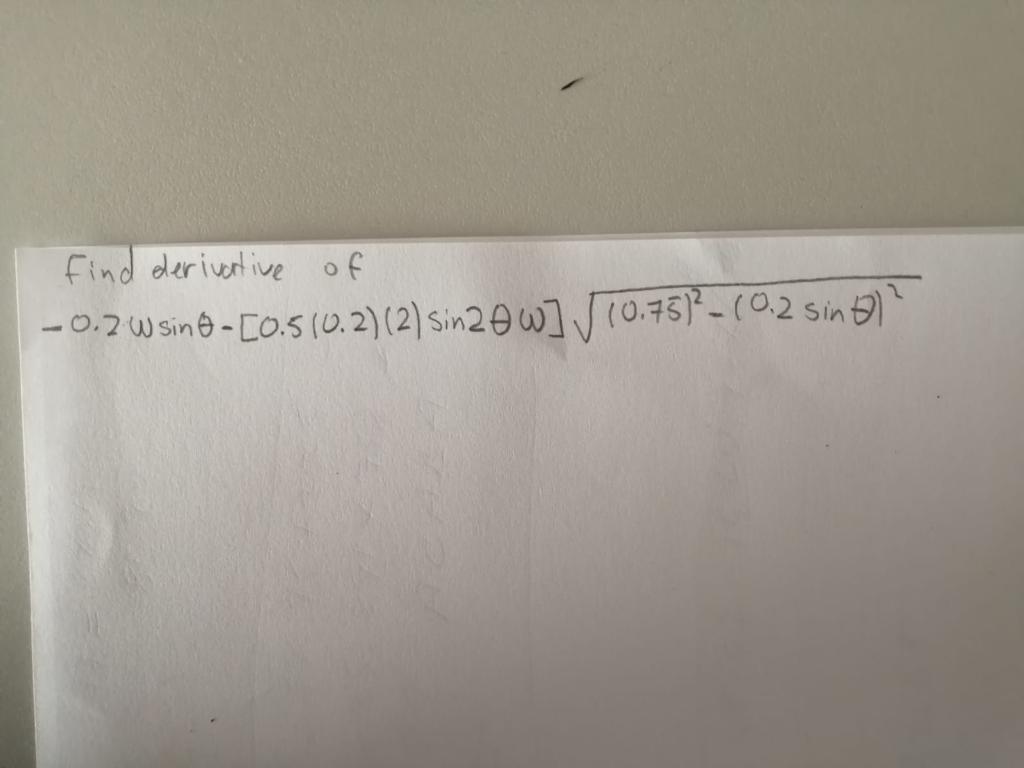 Find derivative of
-0.2 ω sin θ - [0.5 (0.2)(2) sin2 θ ω] √((0.75)² - (0.2 sin θ)²)